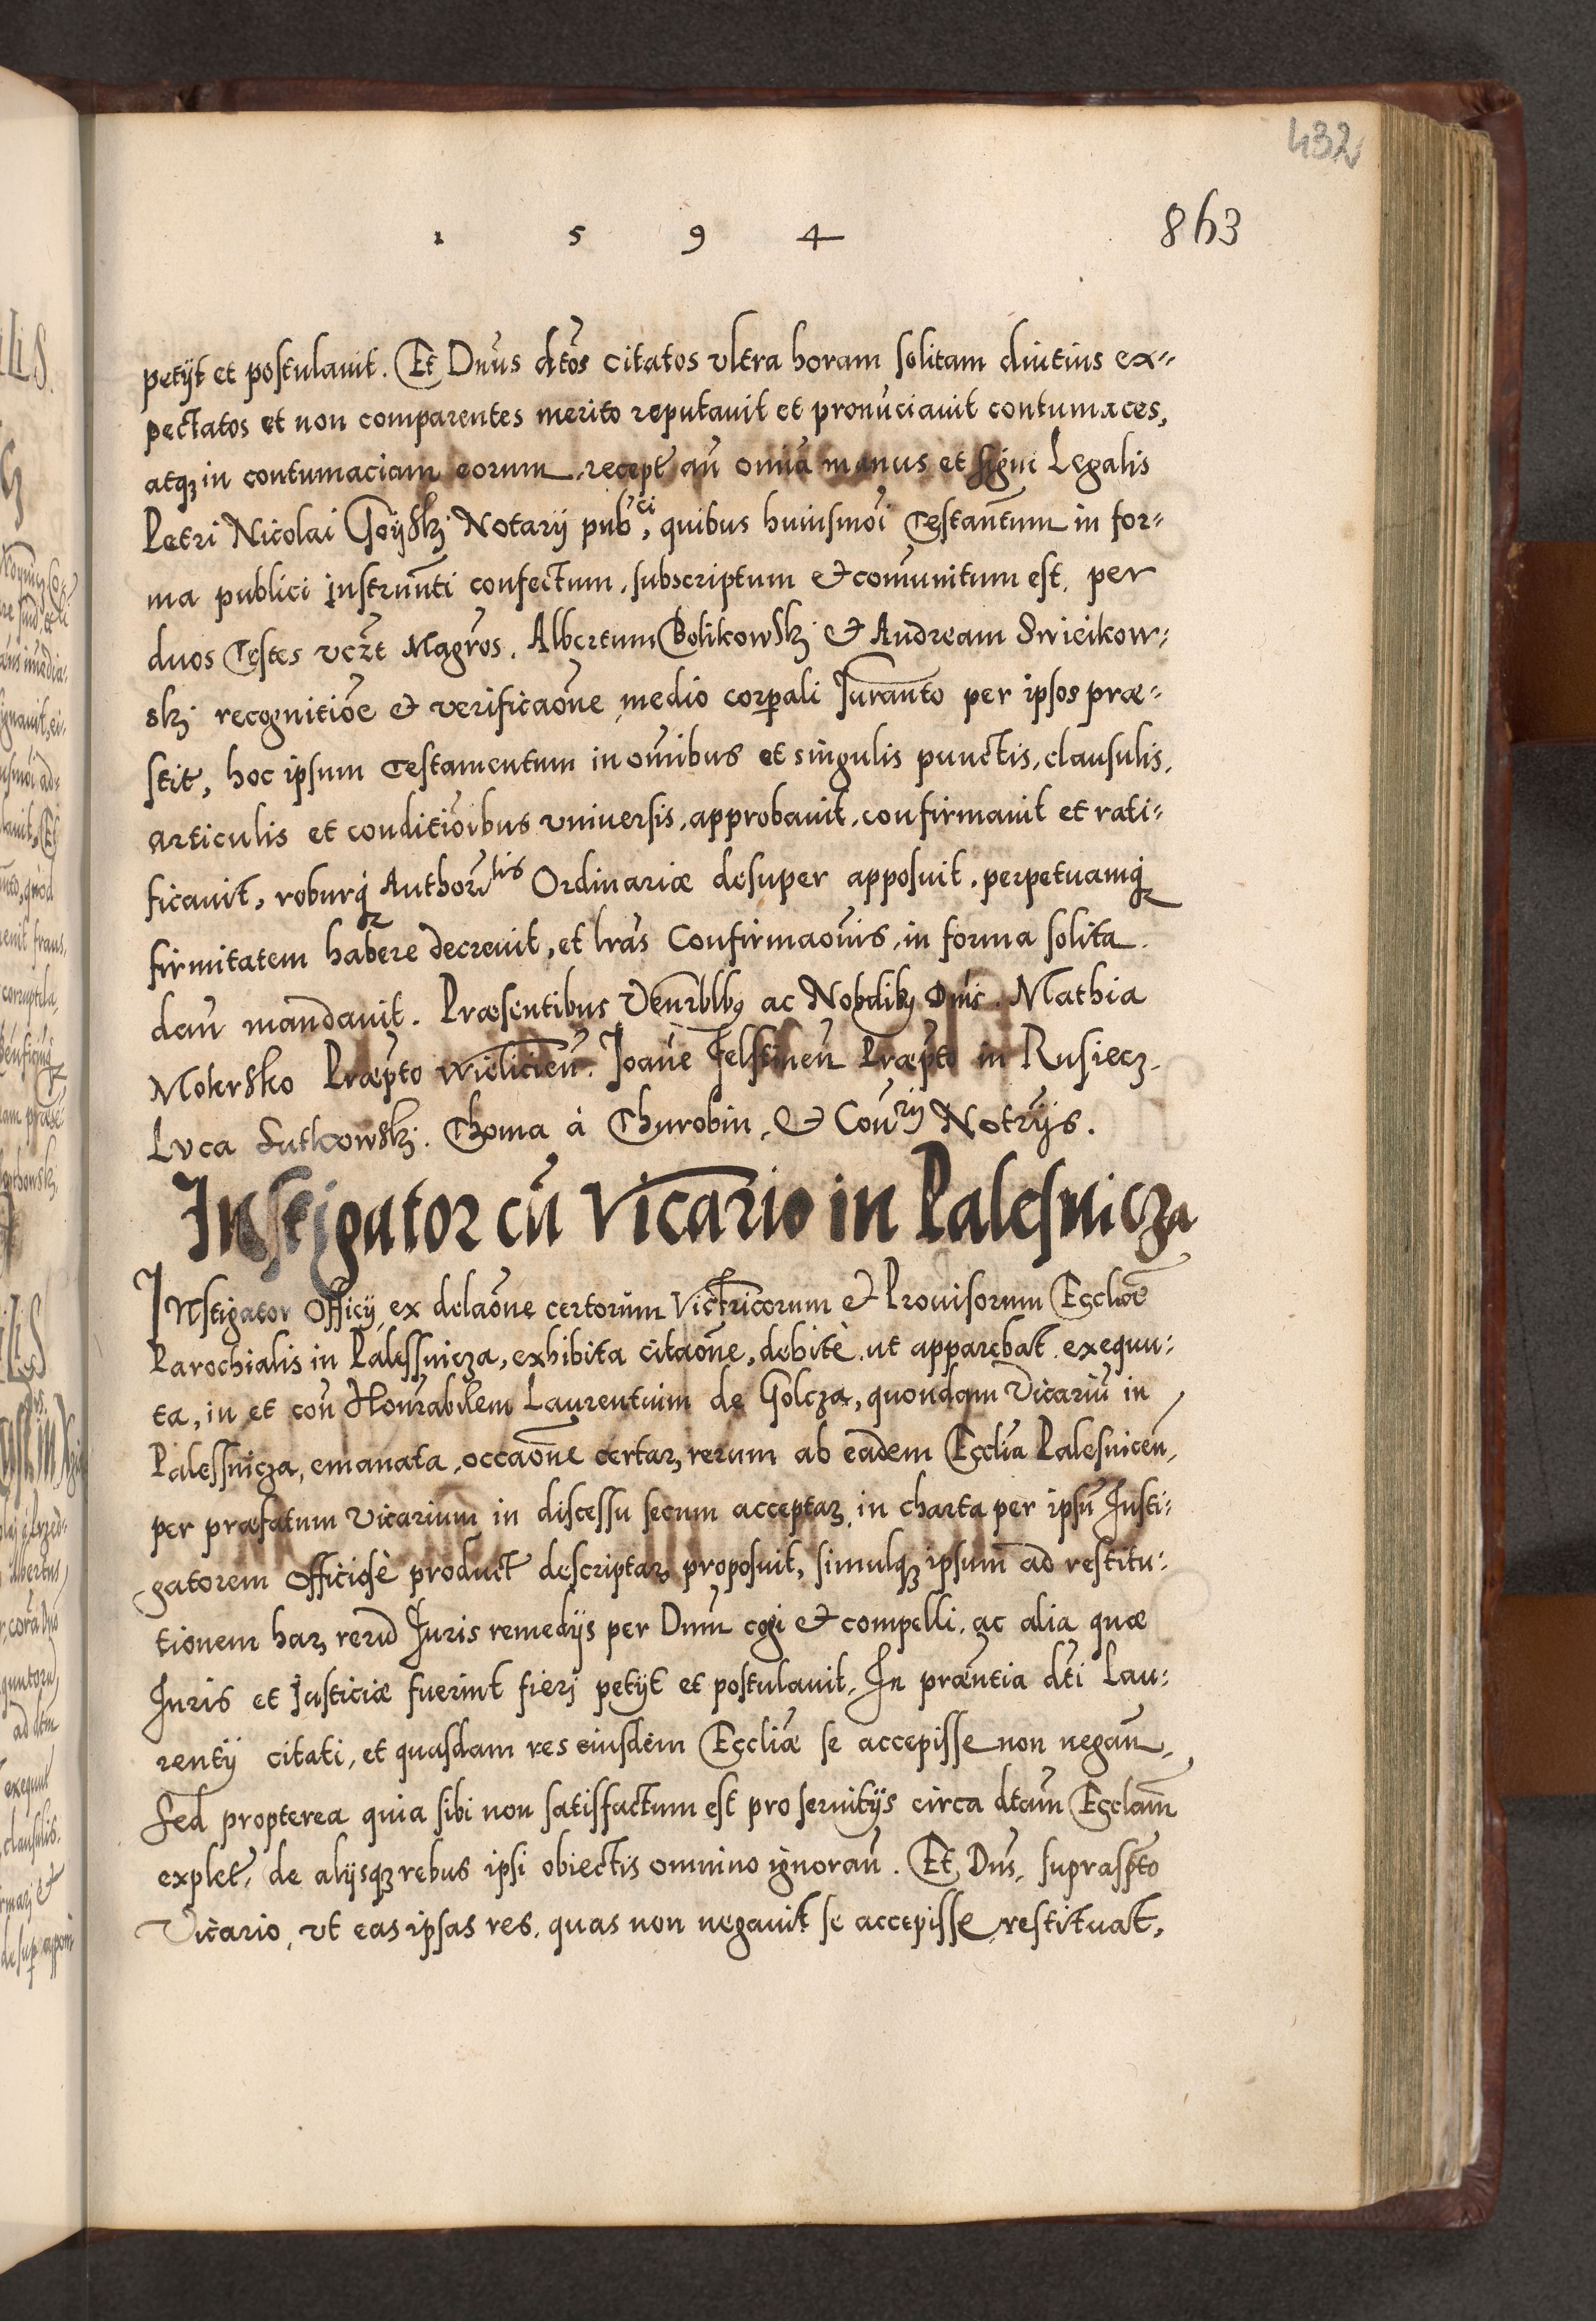 432
1 5 9 4
863
petijt et postulauit. Et Dnus dtos citatos vltra horam solitam diutius ex⸗
pectatos et non comparentes merito reputauit et pronuciauit contumaces,
atqꝫ in contumaciam eorum, recept an omia manus et signi Legalis
Petri Nicolai Goÿskj Notarij pubci, quibus huiusmoi Testantum in for⸗
ma publici instrumti confectum, subscriptum et comunitum est, per
duos Testes vczt Magros. Albertum Bolikowskj et Andream Swieikow⸗
skj recognitioe et verificaone, medio corpali Iuranto per ipsos præ⸗
stit, hoc ipsum Testamentum in omibus et singulis punctis, clausulis,
articulis et conditioibus vniuersis, approbauit, confirmauit et rati⸗
ficauit, roburqꝫ Authortis Ordinariæ desuper apposuit, perpetuamqꝫ
firmitatem habere decreuit, et lras Confirmaonis, in forma solita
dan mandauit. Præsentibus Venrblbꝫ ac Nobdibꝫ Dnis. Mathia
Mokrsko Præpto Wielicien. Ioane Felstinen Præpto in Rusiecz.
Luca Sutkowskj. Thoma à Thurobin, et Conrij Notrijs.
Instigator cũ Vicario in Palesnicza
Instigator Officij, ex delaone certorum Victricorum et Prouisorum Eccliæ
Parochialis in Palessnicza, exhibita citaone, debitè, ut apparebat, exequu⸗
ta, in et con Honrabilem Laurentium de Golcza, quondam Vicariũ in
Palessnicza, emanata, occaone certarꝫ rerum ab eadem Ecclia Palesnicen,
per præfatum Vicarium in discessu secum acceptarꝫ, in charta per ipsũ Insti⸗
gatorem officiosè product descriptarꝫ proposuit, simulqꝫ ipsum ad restitu⸗
tionem harꝫ rerũ Iuris remedijs per Dnum cogi et compelli, ac alia quæ
Iuris et Iusticiæ fuerint fierj petijt et postulauit. In præntia dti Lau⸗
rentij citati, et quasdam res eiusdem Eccliæ se accepisse non negan,
Sed propterea quia sibi non satisfactum est pro seruitijs circa dtam Ecclam
explet, de alijsqꝫ rebus ipsi obiectis omnino ignoran. Et Dns, supraspto
Vicario, vt eas ipsas res, quas non negauit se accepisse restituat,